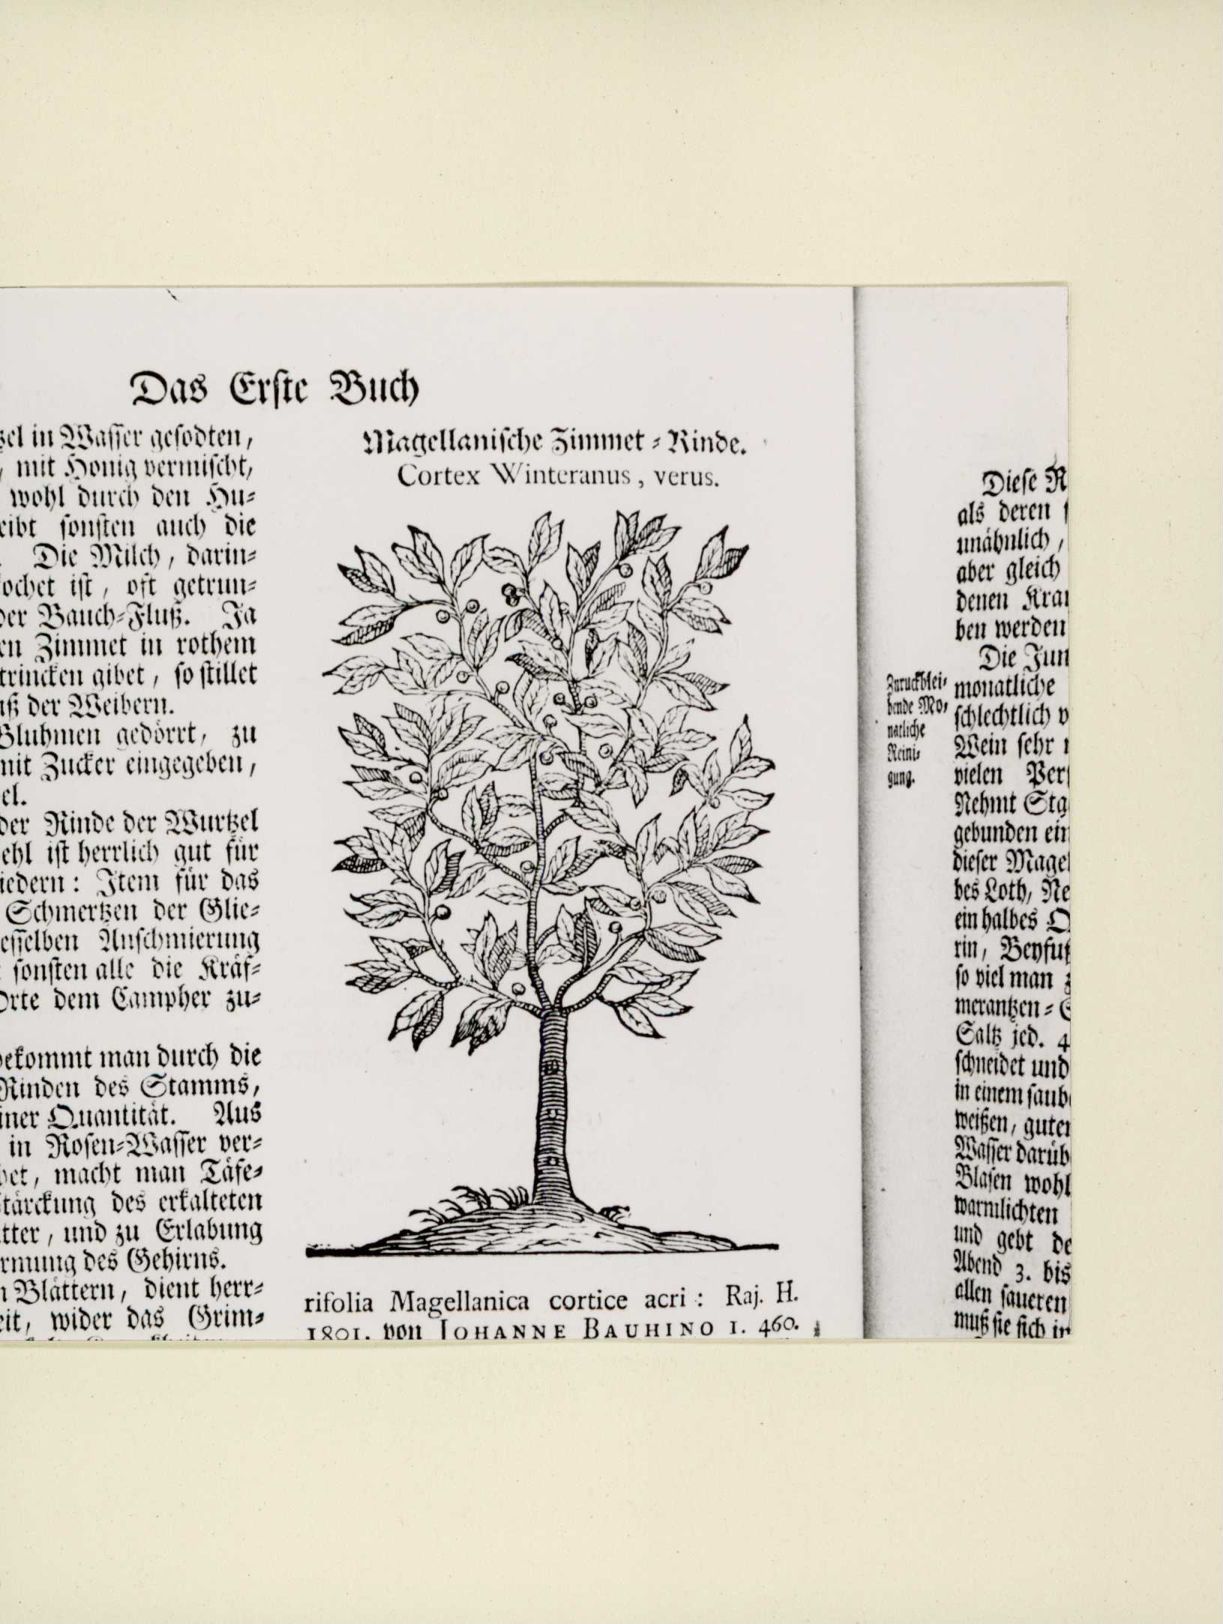 Das Erste Buch
in Wasser gesodten,
, mit Honig vermischt,
wohl durch den Hu-
sonsten auch die
. Die Milch, darin-
ist, oft getrun-
Bauch-Fluß. Ja
Zimmet in rothem
trincken gibet, so stillet
der Weibern.
gedörrt, zu
mit Zucker eingegeben,
der Rinde der Wurtzel
ist herrlich gut für
: Item für das
Schmertzen der Glie-
Anschmierung
sonsten alle die Kräf-
Orte dem Campher zu-
bekommt man durch die
Rinden des Stamms,
Quantität. Aus
in Rosen-Wasser ver-
, macht man Täfe-
des erkalteten
, und zu Erlabung
des Gehirns.
Blättern, dient herr-
, wider das Grim-
Magellanische Zimmet-Rinde.
Cortex Winteranus, verus.
rifolia Magellanica cortice acri: Raj. H.
1801. von JOHANNE BAUHINO 1. 460.
Zuruckblei-
bende Mo-
natliche
Reini-
gung.
Diese
als deren
unähnlich,
aber gleich
denen
ben werden
Die
monatliche
schlechtlich
Wein sehr
vielen
Nehmt
gebunden
dieser
bes Loth,
ein halbes
rin,
so viel man
Saltz jed. 4
schneidet und
in einem
weißen,
Wasser
Blasen
warmlichten
und gebt
Abend 3. bis
allen saueren
muß sie sich